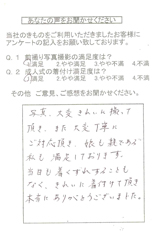 あなたの声をお聞かせください
当社のきものをご利用いただきましたお客様に
アンケートの記入をお願い致しております。
Q.1 前撮り写真撮影の満足度は？
1.満足 2.やや満足 3.やや不満 4.不満
Q.2 成人式の着付け満足度は？
1.満足 2.やや満足 3.やや不満 4.不満
その他 ご意見、ご感想をお聞かせください。
写真、大変きれいに撮って
頂き、また大変丁寧に
ご対応頂き、娘も親である
私も満足しております。
当日も着くずれすることも
なく、きれいに着付けて頂き
本当にありがとうございました。